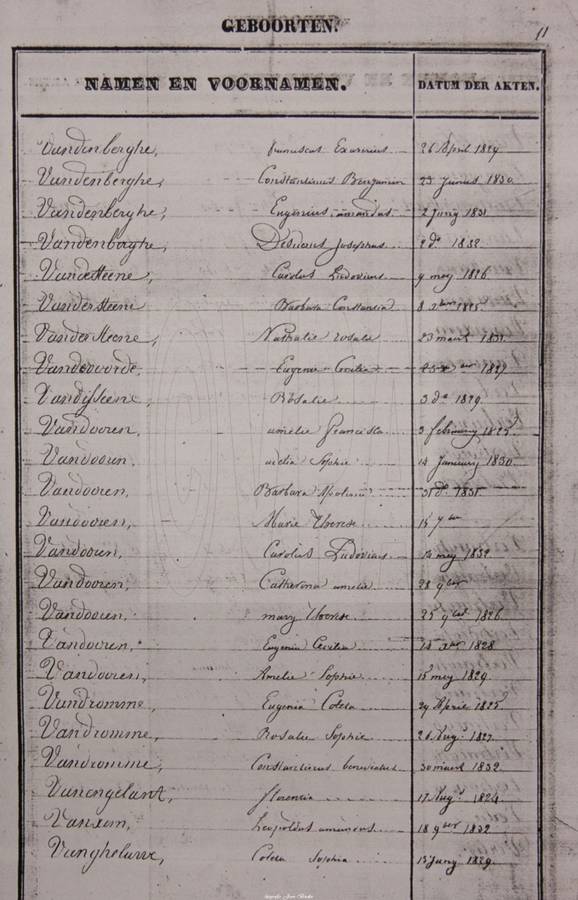 GEBOORTEN.
11
NAMEN EN VOORNAMEN. DATUM DER AKTEN.
Vandenberghe, franciscus 26 April 1829
Vandenberghe, Constantinus Benjamin 23 Junius 1830
Vandenberghe, Eugenius amandus 2 Juny 1831
Vandenberghe, Josephus 2 do 1832
Vandesteene, Carolus Ludovicus 9 mey 1826
Vandersteene Barbara Constantia 8 1825
Vandersteene, Nathalie rosalie 23 maart 1831
Vandevoorde, Eugenie Cecilia 1827
Rosalie 3 do 1829
Vandooren, amelie francisca 3 february 1825
Vandooren, Sophie 14 January 1830
Vandooren, Barbara 1831
Vandooren, Marie Therese 15 7ber
Vandooren, Carolus Ludovicus mey 1832
Vandooren, Catherina amelie 28 9ber
Vandooren, mary Therese 25 9ber 1826
Vandooren, Eugenie Cecilia 1828
Vandooren, Amelie Sophie 15 mey 1829
Vandromme, Eugenia Coleta 29 April 1825
Vandromme, Rosalie Sophie 26 Augt 1827
Vandromme, Constantinus benedictus 30 maart 1832
Vanengelant, florentia 17 Augt 1824
Vanxem, Leopoldus 18 9ber 1832
Vangheluwe, Coleta Sophia 15 Juny 1829